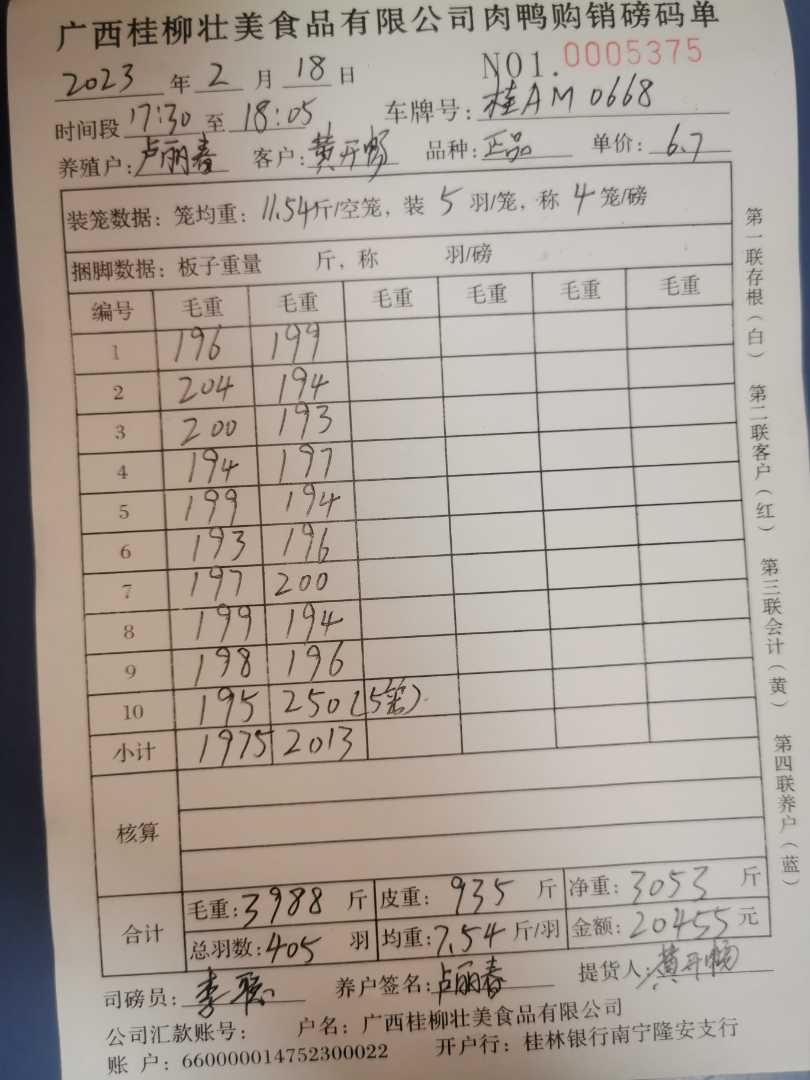 广西桂柳壮美食品有限公司肉鸭购销磅码单
2023 年 2 月 18 日 NO1. 0005375
时间段 17:30 至 18:05 车牌号: 桂AM0668
养殖户: 卢丽春 客户: 黄开畅 品种: 正品 单价: 6.7
装笼数据: 笼均重: 11.54斤/空笼, 装 5 羽/笼, 称 4 笼/磅
捆脚数据: 板子重量 斤, 称 羽/磅
编号 毛重 毛重 毛重 毛重 毛重 毛重
1 196 199
2 204 194
3 200 193
4 194 197
5 199 194
6 193 196
7 197 200
8 199 194
9 198 196
10 195 250(5笼)
小计 1975 2013
核算
合计
毛重: 3988 斤 皮重: 935 斤 净重: 3053 斤
总羽数: 405 羽 均重: 7.54 斤/羽 金额: 20455 元
司磅员: 李 养户签名: 卢丽春 提货人: 黄开畅
公司汇款账号: 户名: 广西桂柳壮美食品有限公司
账 户: 660000014752300022 开户行: 桂林银行南宁隆安支行
第一联存根(白) 第二联客户(红) 第三联会计(黄) 第四联养户(蓝)